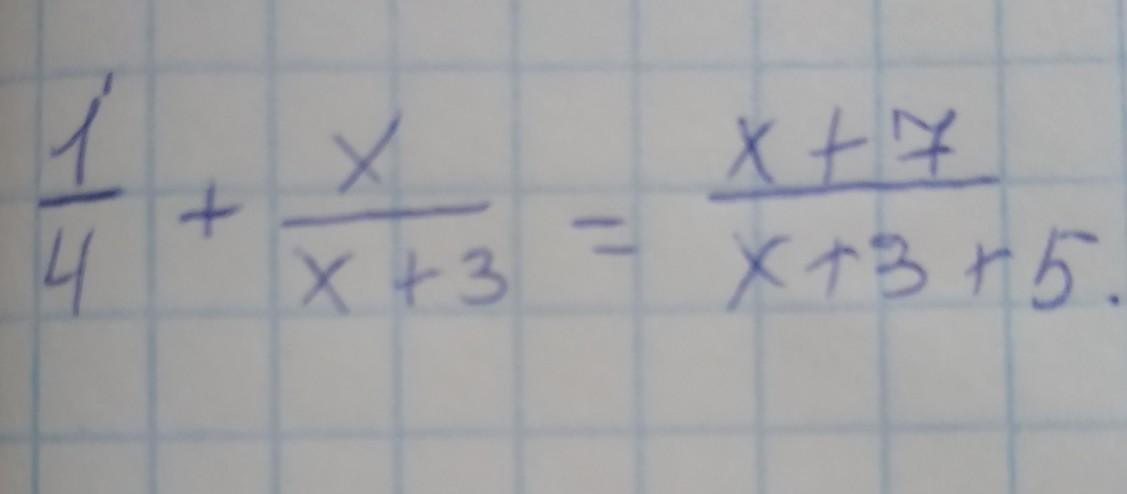 1/4 + x/(x+3) = (x+7)/(x+3+5).